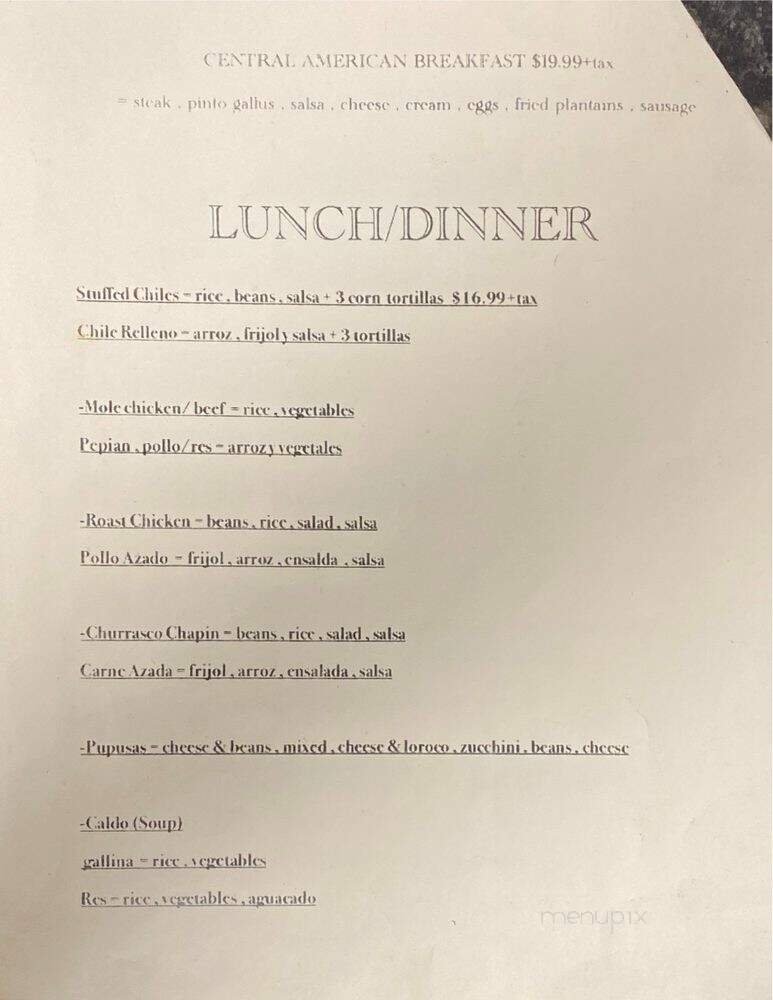 CENTRAL AMERICAN BREAKFAST $19.99+tax
= steak , pinto gallus , salsa , cheese , cream , eggs , fried plantains , sausage
LUNCH/DINNER
Stuffed Chiles = rice , beans , salsa + 3 corn tortillas $16.99+tax
Chile Relleno = arroz , frijol y salsa + 3 tortillas
-Mole chicken/ beef = rice , vegetables
Pepian , pollo/res = arroz y vegetales
-Roast Chicken = beans , rice , salad , salsa
Pollo Azado = frijol , arroz , ensalda , salsa
-Churrasco Chapin = beans , rice , salad , salsa
Carne Azada = frijol , arroz , ensalada , salsa
-Pupusas = cheese & beans , mixed , cheese & loroco , zucchini , beans , cheese
-Caldo (Soup)
gallina = rice , vegetables
Res = rice , vegetables , aguacado
menupix